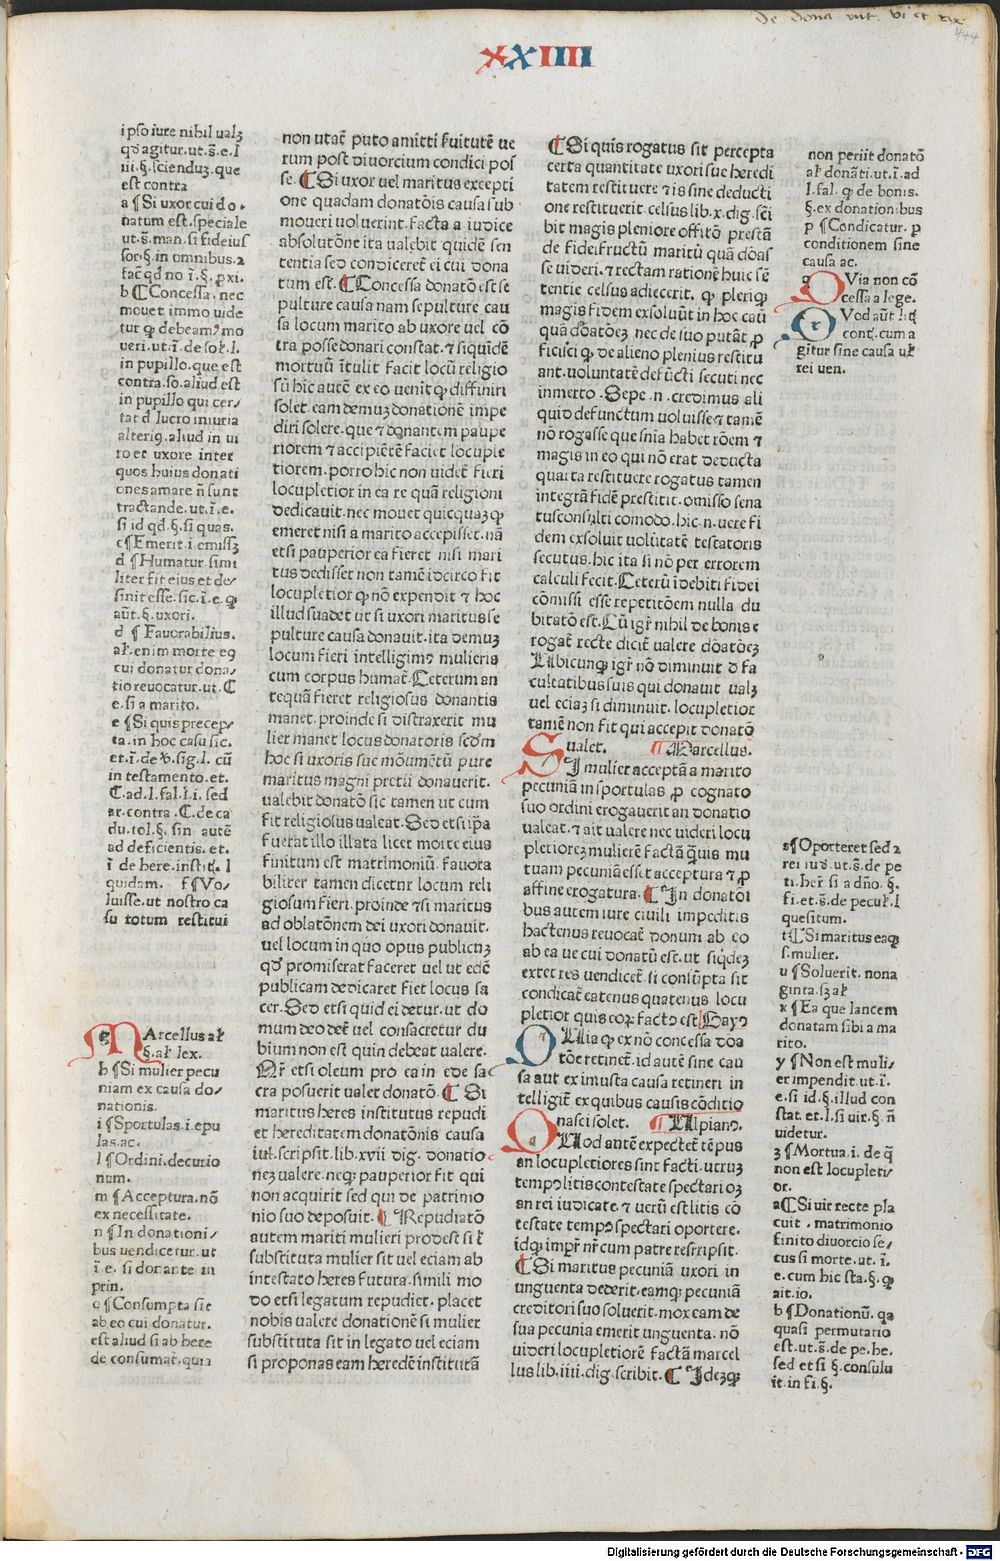 xxiiii
ipso iure nihil ualꝫ
qd̛ agitur. ut. s̄. e. l
iii. §. sciendūꝫ. que
est contra
a ¶ Si uxor cui do-
natum est. speciale
ut. s̄. man. si fideius
sor. §. in omnibus. ⁊
b ¶ Concessa. nec
mouet immo uide
ueri. ut. ī. de soł. l.
in pupillo. que est
contra. so. aliud est
in pupillo qui cer/
tat d̄ lucro iniuria
alteriꝰ. aliud in ui
ro et uxore inter
quos huius donati
ones amare n̄ sunt
tractande. ut. ī. e.
si id qd̛. §. si quas.
c ¶ Emerit. i. emissꝫ
d ¶ Humatur. simi
liter fit eius et de/
sinit esse. sic. ī. e. ꝙ
aūt. §. uxori.
d ¶ Fauorabilius.
ał. enim morte eꝰ
cui donatur dona/
tio reuocatur. ut. C
e. si a marito.
e ¶ Si quis precep/
ta. in hoc casu sic.
et. ī. de v̄. sig. l. cū
in testamento. et.
C. ad. l. fal. l. i. sed
ar. contra. C. de ca
du. tol. §. sin autē
ad deficientis. et.
ī. de here. instiť. l
quidam. f ¶ Vo/
luisse. ut nostro ca
su totum restitui
g MArcellus ał
§. ał lex.
h ¶ Si mulier pecu
niam ex causa do/
nationis.
i ¶ Sportulas. i. epu
las. ac.
l ¶ Ordini. decurio
num.
m ¶ Acceptura. nō
ex necessitate.
n ¶ In donationi/
bus uendicetur. ut
ī. e. si donante in
prin.
o ¶ Consumpta sit
ab eo cui donatur.
est aliud si ab here
de consumat̄. quia
non utat̄ puto amitti s̄uitutē ue
rum post diuorcium condici pos
se. ¶ Si uxor uel maritus excepti
one quadam donatōis causa sub
moueri uoluerint. facta a iudice
absolutōne ita ualebit quidē sen
tentia sed condiceret̄ ei cui dona
tum est. ¶ Concessa donatō est se
pulture causa nam sepulture cau
sa locum marito ab uxore uel cō
tra posse donari constat. ⁊ siquidē
mortuū ītulit facit locū religio
sū hic autē ex eo uenit ꝙ diffiniri
solet. eam demuꝫ donationē impe
diri solere. que ⁊ donantem paupe
riorem ⁊ accipiētē faciet locuple
tiorem. porro hic non uidet̄ fieri
locupletior in ea re quā religioni
dedicauit. nec mouet quicquaꝫ ꝙ
emeret nisi a marito accepisset. nā
etsi pauperior ea fieret nisi mari
tus dedisset non tamē idcirco fit
locupletior ꝙ nō expendit ⁊ hoc
illud suadet ut si uxori maritus se
pulture causa donauit. ita demuꝫ
locum fieri intelligimꝰ mulieris
cum corpus humat̄. Ceterum an
tequā fieret religiosus donantis
manet. proinde si distraxerit mu
lier manet locus donatoris scdm̄
hoc si uxoris sue mōumētū pure
maritus magni pretii donauerit.
ualebit donatō sic tamen ut cum
fit religiosus ualeat. Sed etsi ip̄a
fuerat illo illata licet morte eius
finitum est matrimoniū. fauora
biliter tamen dicetur locum reli
giosum fieri. proinde ⁊ si maritus
ad oblatōnem dei uxori donauit.
uel locum in quo opus publicuꝫ
qd̛ promiserat faceret uel ut edē
publicam dedicaret fiet locus sa
cer. Sed etsi quid ei detur. ut do
num deo det̄ uel consacretur du
bium non est quin debeat ualere.
cra posuerit ualet donatō. ¶ Si
maritus heres institutus repudi
et hereditatem donatōnis causa
iuł. scripsit. lib. xvii dig. donatio
neꝫ ualere. neqꝫ pauperior fit qui
non acquirit sed qui de patrimo
nio suo deposuit. ¶ Repudiatō
autem mariti mulieri prodest si ł
substituta mulier sit uel eciam ab
intestato heres futura. simili mo
do etsi legatum repudiet. placet
nobis ualere donationē si mulier
substituta sit in legato uel eciam
si proponas eam heredē institutā
¶ Si quis rogatus sit percepta
certa quantitate uxori sue heredi
tatem restituere ⁊ is sine deducti
one restituerit. celsus lib. x. dig. sc̄i
bit magis pleniore offitō prestā
de fidei fructū maritū quā dōas
se uideri. ⁊ rectam rationē huic sē
tentie celsus adiecerit. ꝙ pleriqꝫ
magis fidem exsoluūt in hoc caū
quā dōatōeꝫ nec de suo putāt p̱
ficisci ꝙ de alieno plenius restitu
ant. uoluntatē defūcti secuti nec
inmerto. Sepe. n. credimus ali
quid defunctum uoluisse ⁊ tamē
nō rogasse que sn̄ia habet rōem ⁊
magis in eo qui nō erat deducta
quarta restituere rogatus tamen
integrā fidē prestitit. omisso sena
tusconsulti comodo. hic. n. uere fi
dem exsoluit uolūtatē testatoris
secutus. hic ita si nō per errorem
calculi fecit. Ceterū īdebiti fidei
cōmissi esse repetitōem nulla du
bitatō est. Cū igr̄ nihil de bonis e
rogat̄ recte dicit̄ ualere dōatōeꝫ
Ubicunqꝫ igr̄ nō diminuit d̄ fa
cultatibus suis qui donauit ualꝫ
uel eciaꝫ si diminuit. locupletior
tamē non fit qui accepit donatō
ualet. ¶ Marcellus.
SI mulier acceptā a marito
pecuniā in sportulas p̱ cognato
suo ordini erogauerit an donatio
ualeat. ⁊ ait ualere nec uideri locu
pletiorē mulierē factā q̄uis mu
tuam pecuniā esset acceptura ⁊ p̱
affine erogatura. ¶ In donatōi
bus autem iure ciuili impeditis
hactenus reuocat̄ donum ab eo
ab ea ue cui donatū est. ut siq̄deꝫ
extet res uendicet̄. si consūpta sit
condicat̄ eatenus quatenus locu
pletior quis eoꝝ factꝰ est. Gayꝰ
QUia ꝙ ex nō concessa dōa
tōe retinet̄. id autē sine cau
sa aut ex iniusta causa retineri in
telligit̄ ex quibus causis cōditio
nasci solet. ¶ Ulpianꝰ.
QUod antē expectet tēpus
an locupletiores sint facti. utruꝫ
tempꝰ litis contestate spectari oꝫ
an rei iudicate. ⁊ uerū est litis cō
testate tempꝰ spectari oportere.
idqꝫ impr̄ nr̄ cum patre rescripsit.
¶ Si maritus pecuniā uxori in
unguenta dederit. eamqꝫ pecuniā
creditori suo soluerit. mox eam de
sua pecunia emerit unguenta. nō
uideri locupletiorē factā marcel
lus lib. iiii. dig. scribit. ¶ Ideꝫqꝫ
non periit donatō
ał donāti. ut. ī. ad
l. fal. ꝙ de bonis.
§. ex donationibus
p ¶ Condicatur. p̱
conditionem sine
causa ac.
q QVia non cō
cessa a lege.
r QVod aūt
cont̄. cum a
gitur sine causa uł
rei uen.
s ¶ Oporteret sed ⁊
rei iud̛. ut. s̄. de pe
ti. her̄. si a dn̄o. §.
fi. et. s̄. de pecuł. l
quesitum.
t ¶ Si maritus eaqꝫ
s. mulier.
u ¶ Soluerit. nona
ginta. sꝫ ał
x ¶ Ea que lancem
donatam sibi a ma
rito.
y ¶ Non est muli/
er impendit. ut. ī.
e. si id. §. illud con
stat. et. l. si uir. §. n̄
uidetur.
z ¶ Mortua. i. de q̄
non est locupleti/
or.
a ¶ Si uir recte pla
cuit. matrimonio
finito diuorcio se/
cus si morte. ut. ī.
e. cum hic sta. §. ꝙ
ait. io.
b ¶ Donationū. qa
quasi permutatio
est. ut. s̄. de pe. he.
sed et si §. consulu
it. in fi. §.
Digitalisierung gefördert durch die Deutsche Forschungsgemeinschaft - DFG